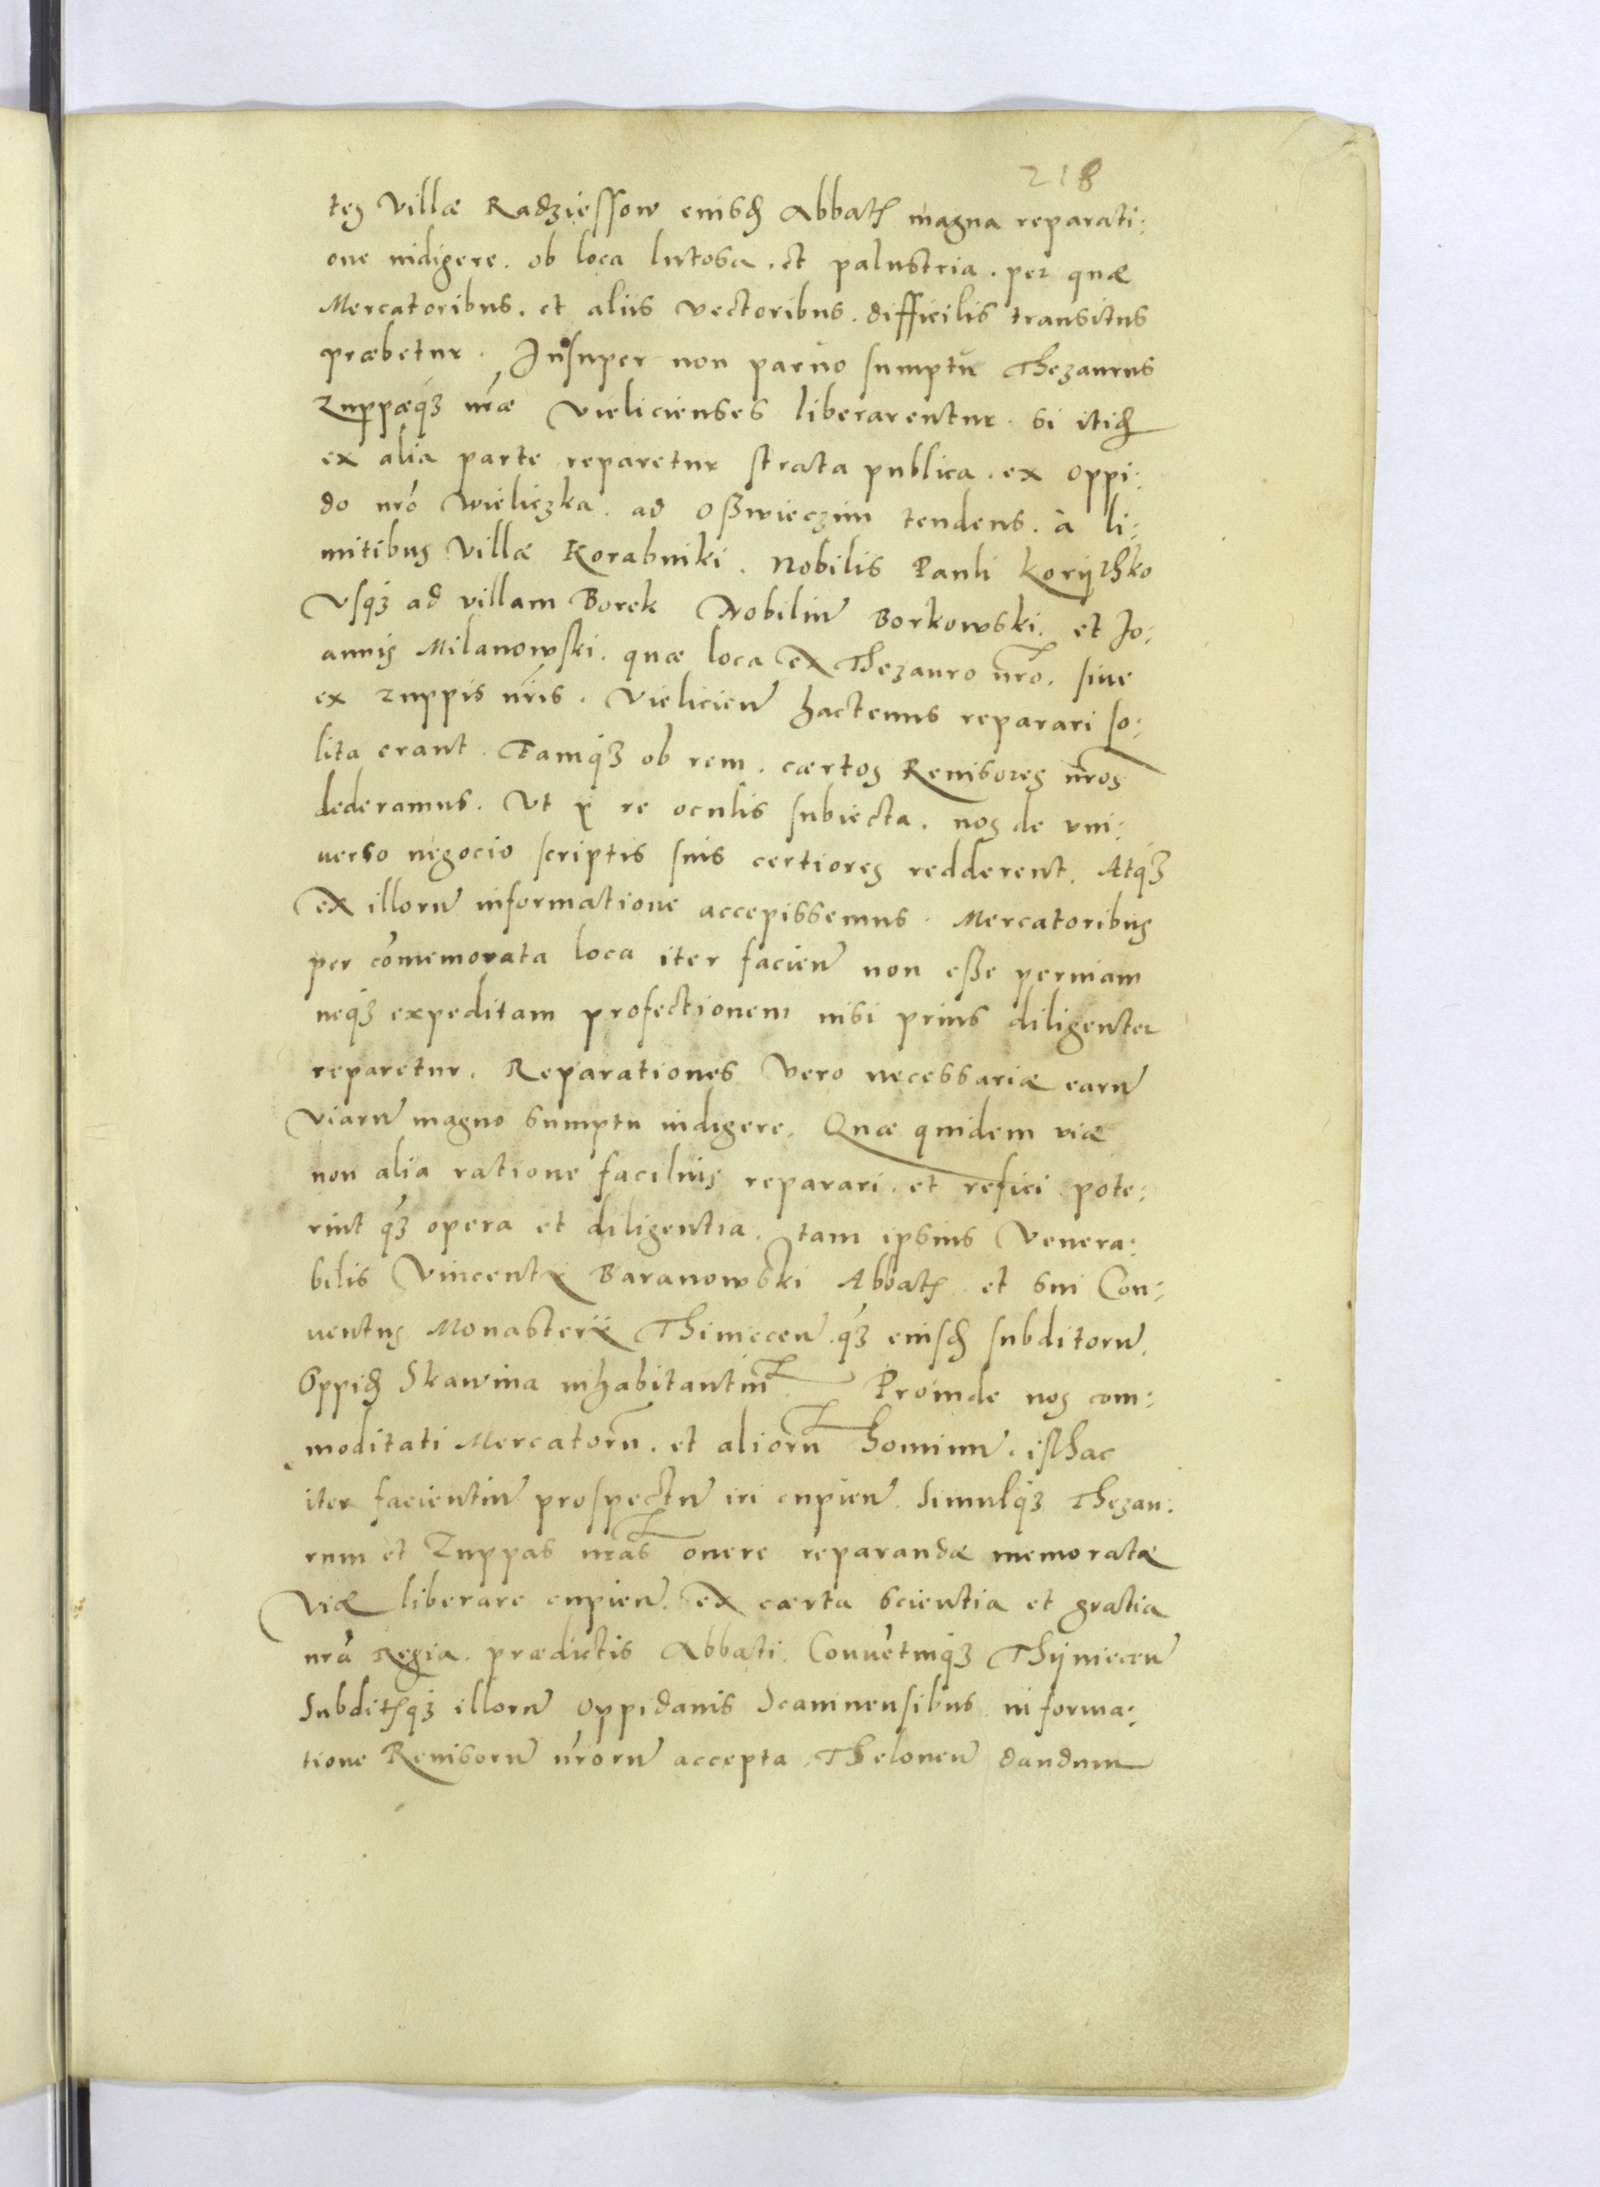 218
tes Villæ Radziessow eiusd Abbatis magna reparati:
one indigere. ob loca lutosa. et palustria. per quæ
Mercatoribus. et aliis vectoribus. difficilis transitus
præbetur. Insuper non paruo sumptu Thezaurus
Zuppæq₃ nr̄æ Vielicienses liberarentur. si itid
ex alia parte reparetur strata publica. ex oppi:
do nr̄o Wieliczka. ad Osswieczim tendens. à li:
mitibus Villæ Korabniki. Nobilis Pauli Korijthko
Vsq₃ ad villam Borek Nobiliū Borkowski. et Jo:
annis Milanowski. quæ loca ex Thezauro nr̄o. siue
ex zuppis nr̄is. Vielicień hactenus reparari so:
lita erant. Eamq₃ ob rem. cærtos Reuisores nr̄os
dederamus. Vt p̱ re oculis subiecta. nos de vni:
uerso negocio scriptis suis certiores redderent. Atq₃
ex illorū informatione accepissemus. Mercatoribus
per com̄emorata loca iter facień non esse peruiam
neq₃ expeditam profectionem nisi prius diligenter
reparetur. Reparationes vero necessariæ earū
viarū magno sumptu indigere. Quæ quidem viæ
non alia ratione facilius reparari. et refici pote:
rint q₃ opera et diligentia. tam ipsius Venera:
bilis Vincentii Baranowski Abbatis et sui Con:
uentus Monasterii Thiniecen̄. q₃ eiusd subditorū.
Oppid Skawina inhabitantiū Proinde nos com:
moditati Mercatorū. et aliorū hominū. isthac
iter facientiū prospectū iri cupień. Simulq₃ Thezau:
rum et Zuppas nr̄as onere reparandæ memoratæ
Viæ liberare cupień. ex cærta scientia et gratia
nr̄a Regia. prædictis Abbati. Conuētuiq₃ Thijniecen̄
Subditisq₃ illorū oppidanis Scauinensibus informa:
tione Reuisorū nr̄orū accepta. Theloneū dandum